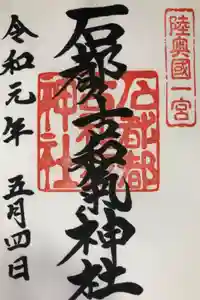 陸奥國一宮
石都々古和氣神社
石都都
神社
令和元年 五月四日